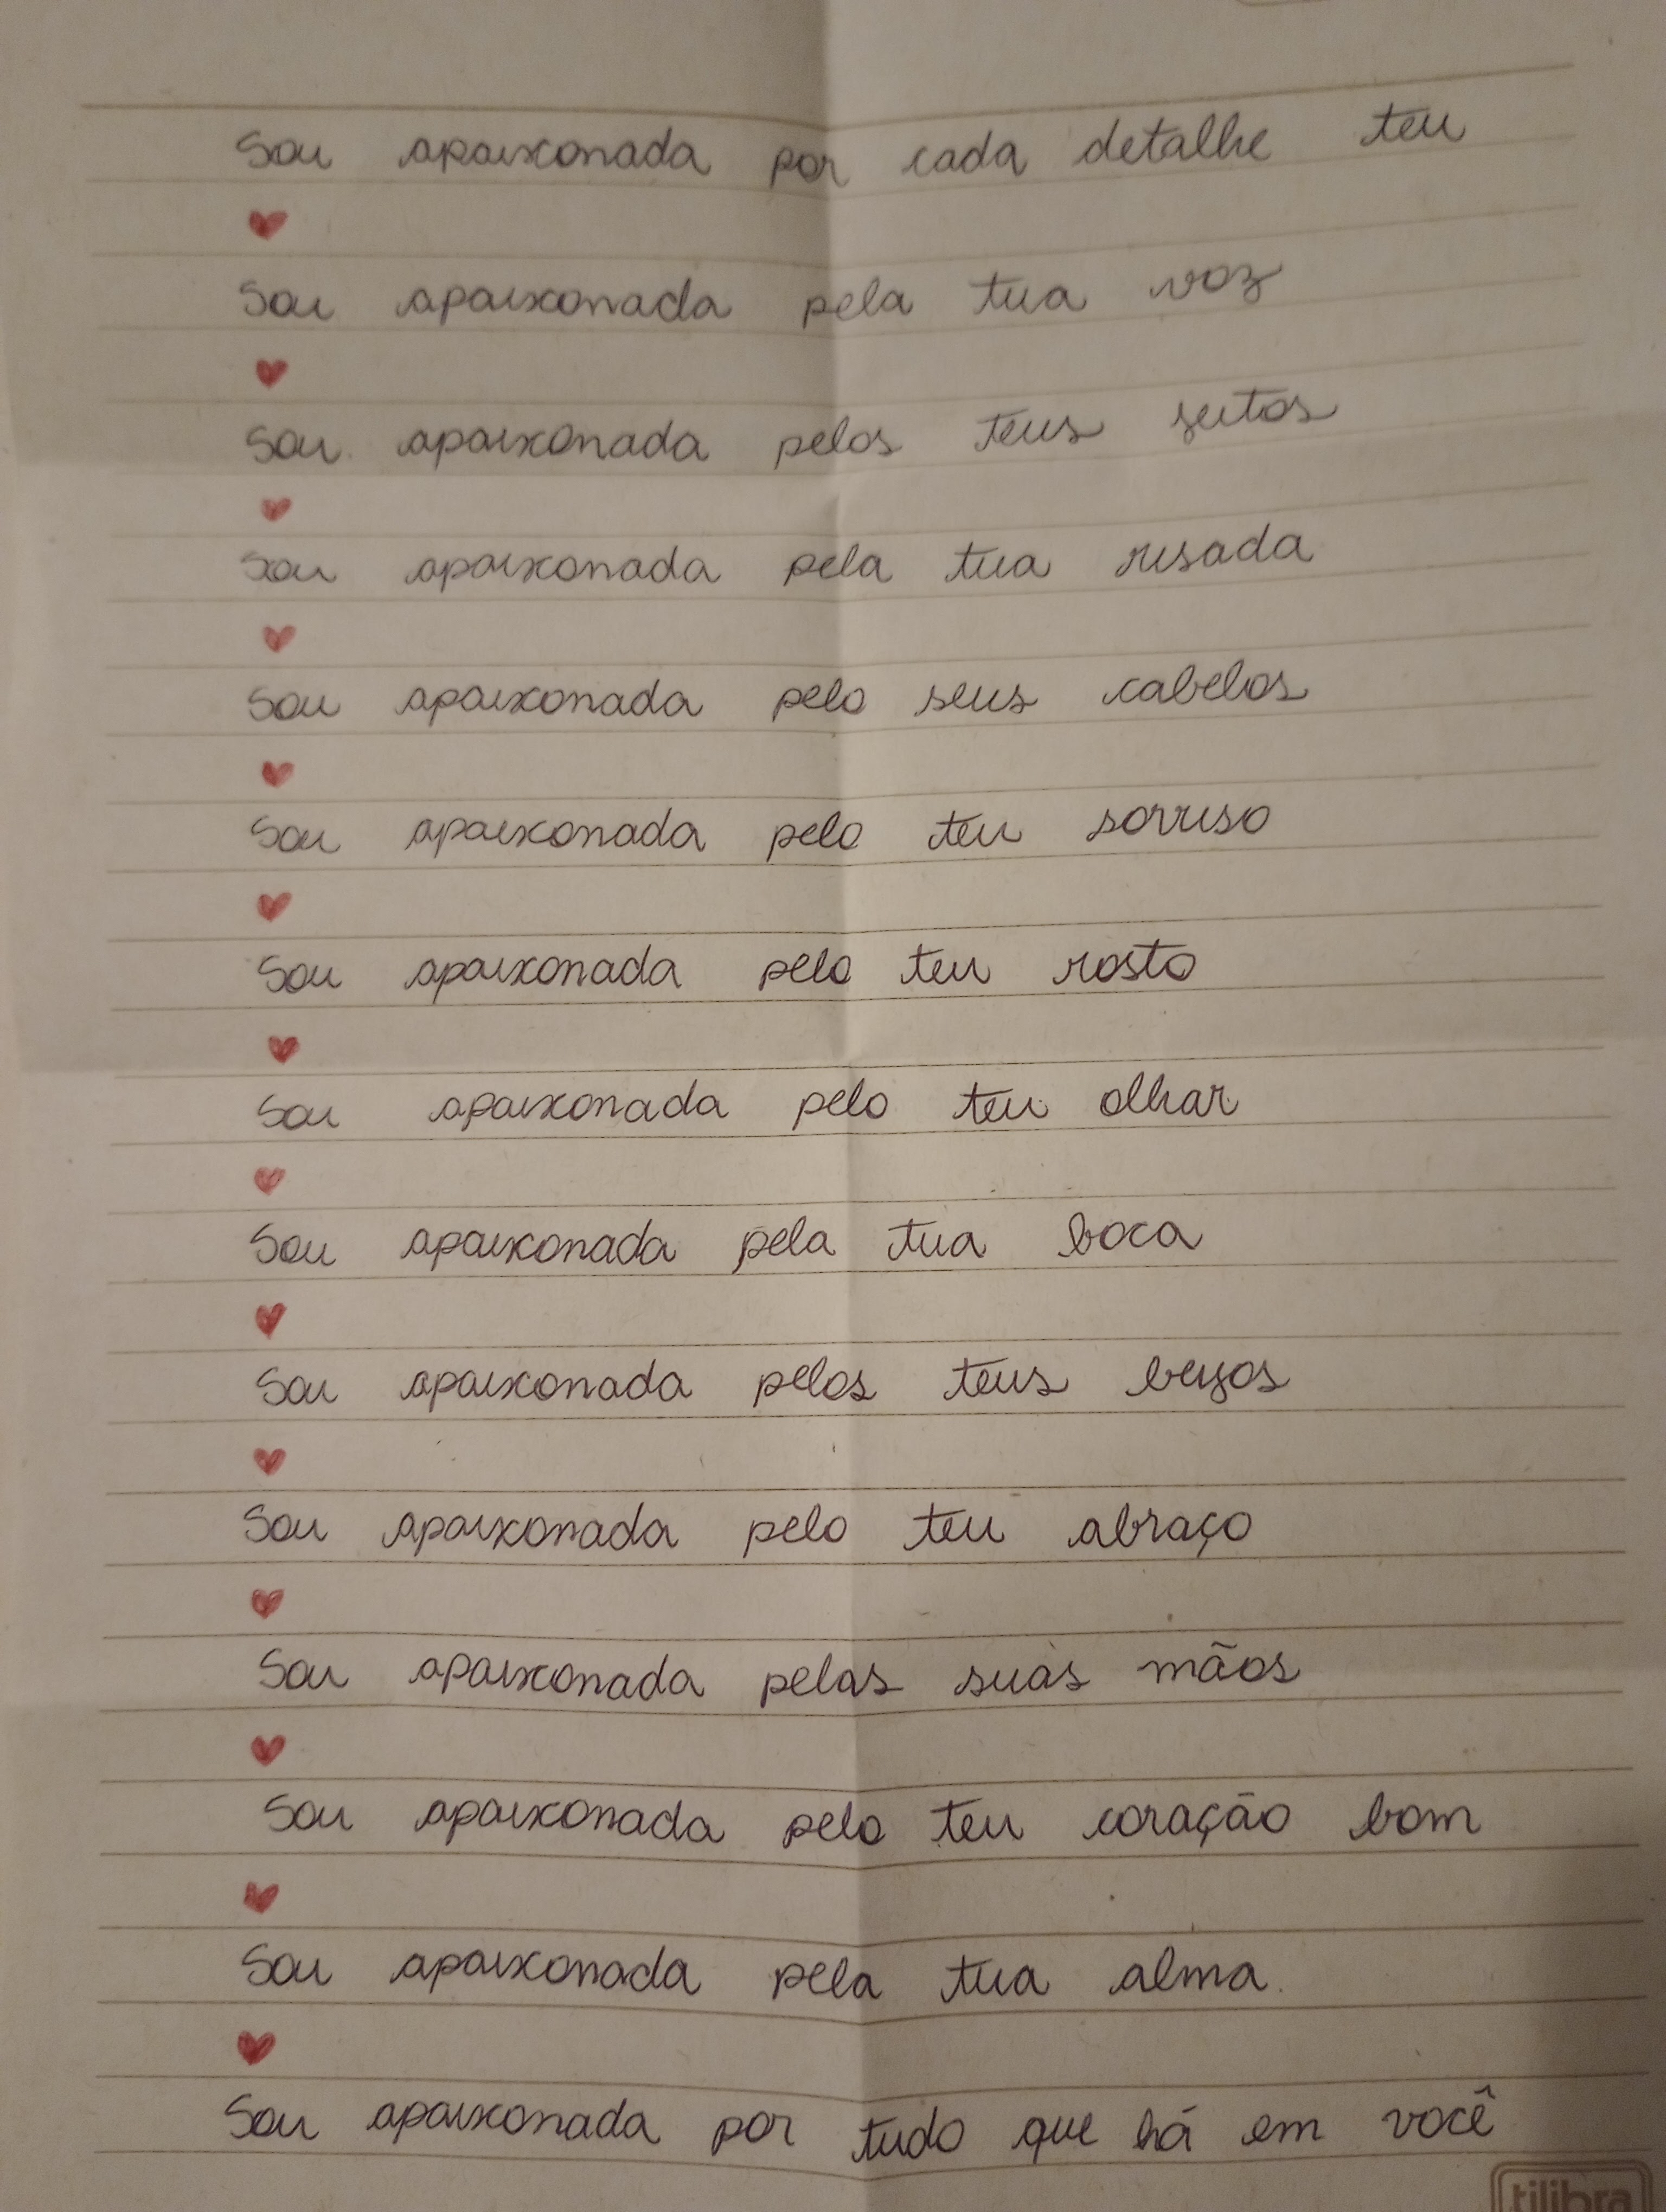 Sou apaixonada por cada detalhe teu
♥
Sou apaixonada pela tua voz
♥
Sou apaixonada pelos teus jeitos
♥
Sou apaixonada pela tua risada
♥
Sou apaixonada pelo seus cabelos
♥
Sou apaixonada pelo teu sorriso
♥
Sou apaixonada pelo teu rosto
♥
Sou apaixonada pelo teu olhar
♥
Sou apaixonada pela tua boca
♥
Sou apaixonada pelos teus beijos
♥
Sou apaixonada pelo teu abraço
♥
Sou apaixonada pelas suas mãos
♥
Sou apaixonada pelo teu coração bom
♥
Sou apaixonada pela tua alma.
♥
Sou apaixonada por tudo que há em você
tilibra